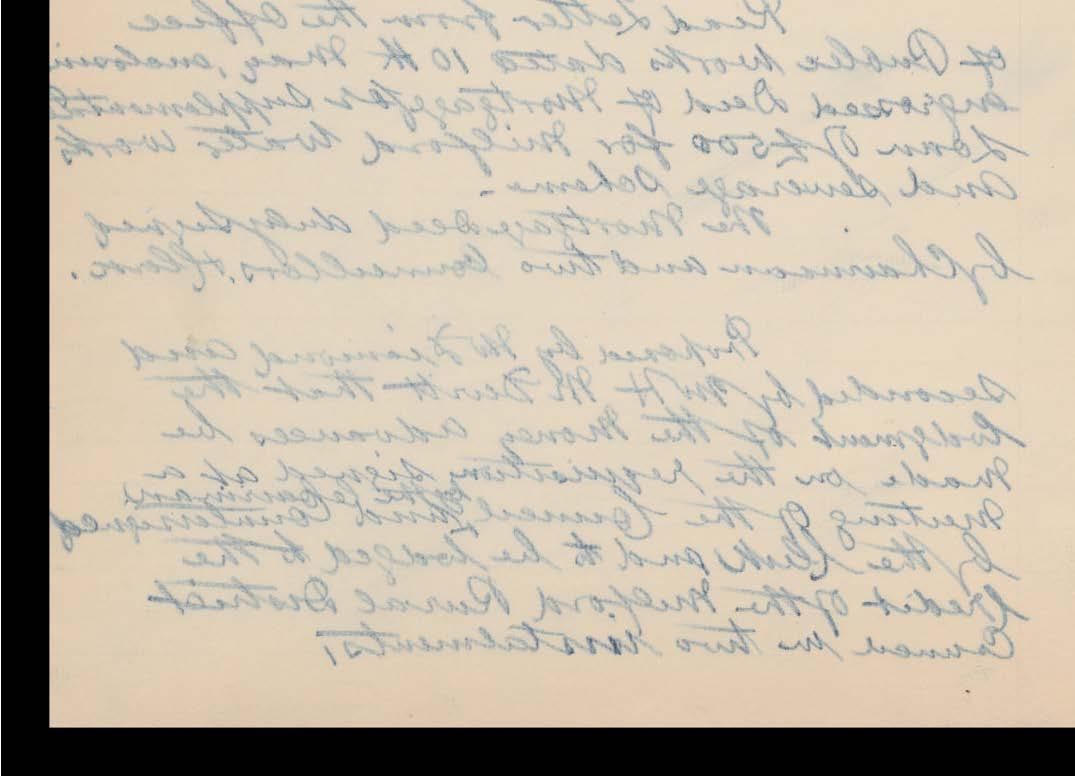 Read Letter from the Office
of Public Works dated 10th May, enclosin
engrossed Deed of Mortgage for Supplementa
Loan of £500 for Milford Water Works
and Sewerage Scheme.
The Mortgage Deed duly signed
by Chairman and two Councillors, & Clerk.
Proposed by Mr Diamond and
seconded by Mr H Mc Devitt that the
lodgment of the money advances be
made on the requisition signed at a
Meeting of the Council by the Chairman
and countersigned
by the Clerk and to be lodged to the
Credit of the Milford Rural District
Council in two instalments,